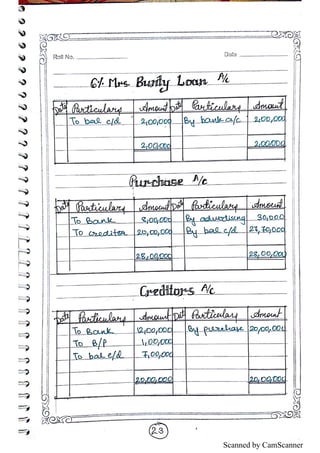 Roll No. Date
6% Mrs. Bunty Loan A/c
Date Particulars Amount Date Particulars Amount
To bal c/d 2,00,000 By bank a/c 2,00,000
2,00,000 2,00,000
Purchase A/c
Date Particulars Amount Date Particulars Amount
To Bank 8,00,000 By advertising 30,000
To Creditor 20,00,000 By bal c/d 27,70,000
28,00,000 28,00,000
Creditors A/c
Date Particulars Amount Date Particulars Amount
To Bank 12,00,000 By purchase 20,00,000
To B/P 1,00,000
To bal c/d 7,00,000
20,00,000 20,00,000
23
Scanned by CamScanner